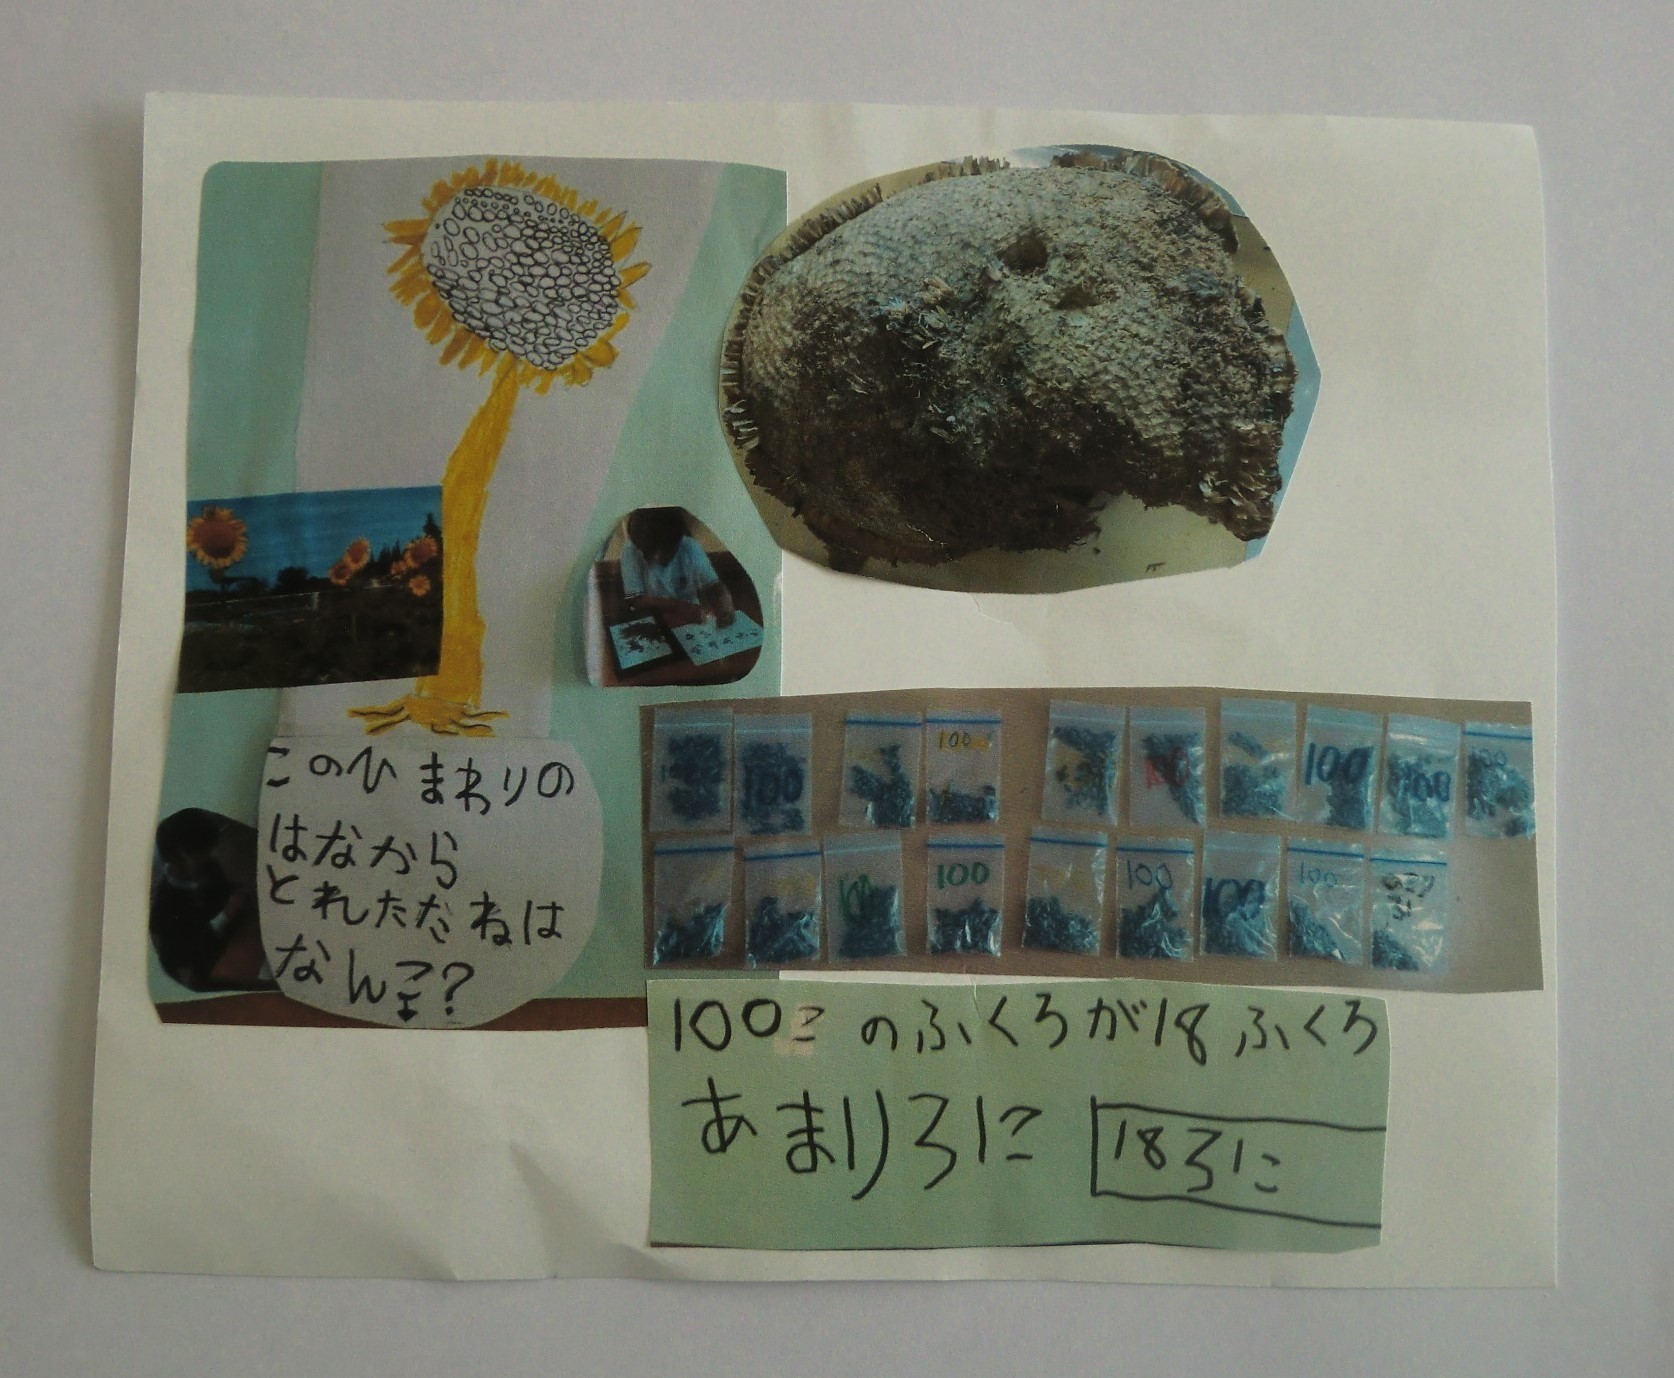 このひまわりの
はなから
とれただねは
なんこ?
100 100 100 100 100 100
100 100 100 100 100
100このふくろが18ふくろ
あまり31こ
1831こ